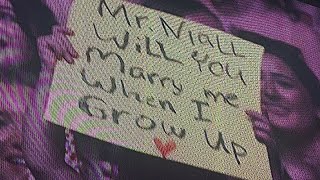 Mr. Niall
Will you
Marry me
When I
Grow Up